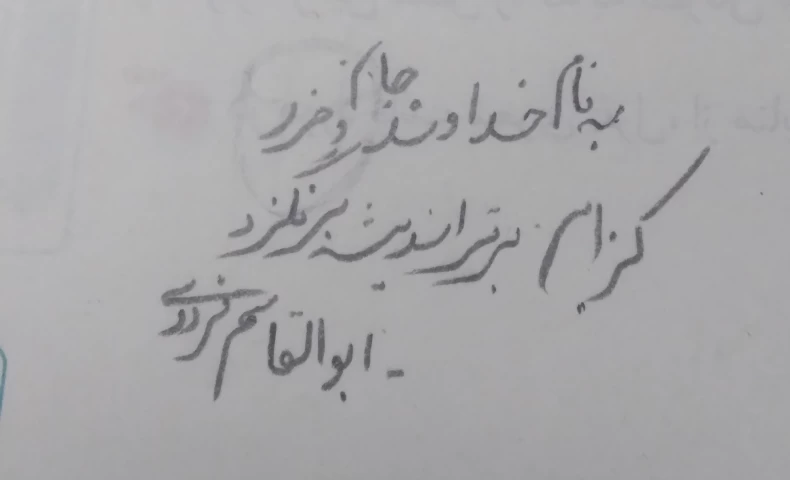 به نام خداوند جان و خرد
کزین برتر اندیشه برنگذرد
- ابوالقاسم فردوسی